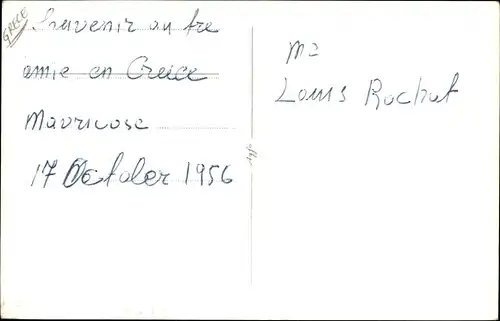 GRECE
Souvenir au tre
amie en Greice
Mauricose
17 October 1956
Mr
Louis Rochat